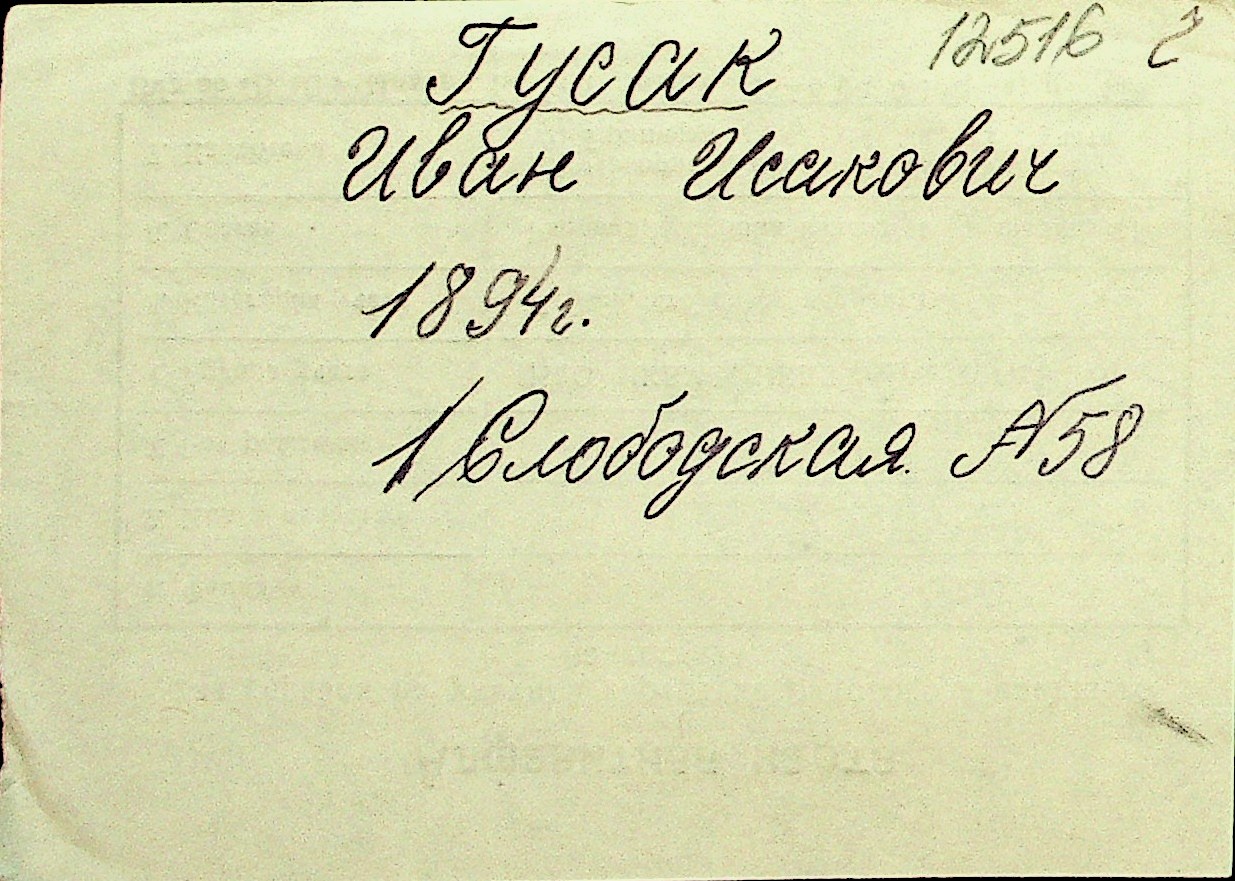 12516 г
Гусак
Иван Исакович
1894г.
1/Слободская №58